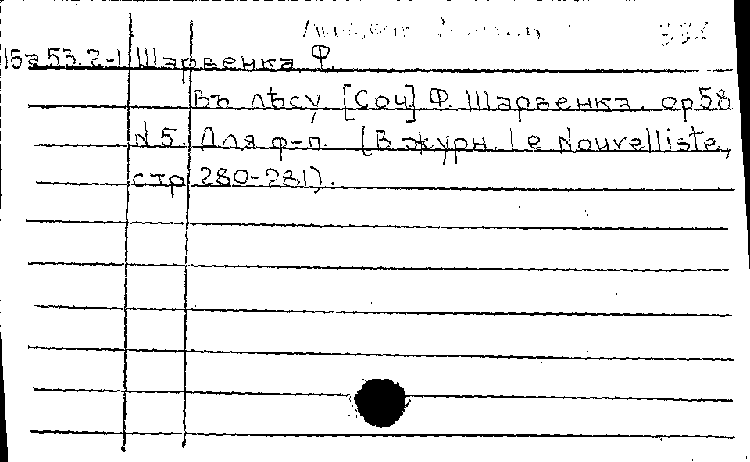 15а 53.2-1 Шарвенка, Ф.
Въ лѣсу [Соч] Ф. Шарвенка. ор 58
№ 5 Для ф-п. (В журн. Le Nouvelliste,
стр 280-281).